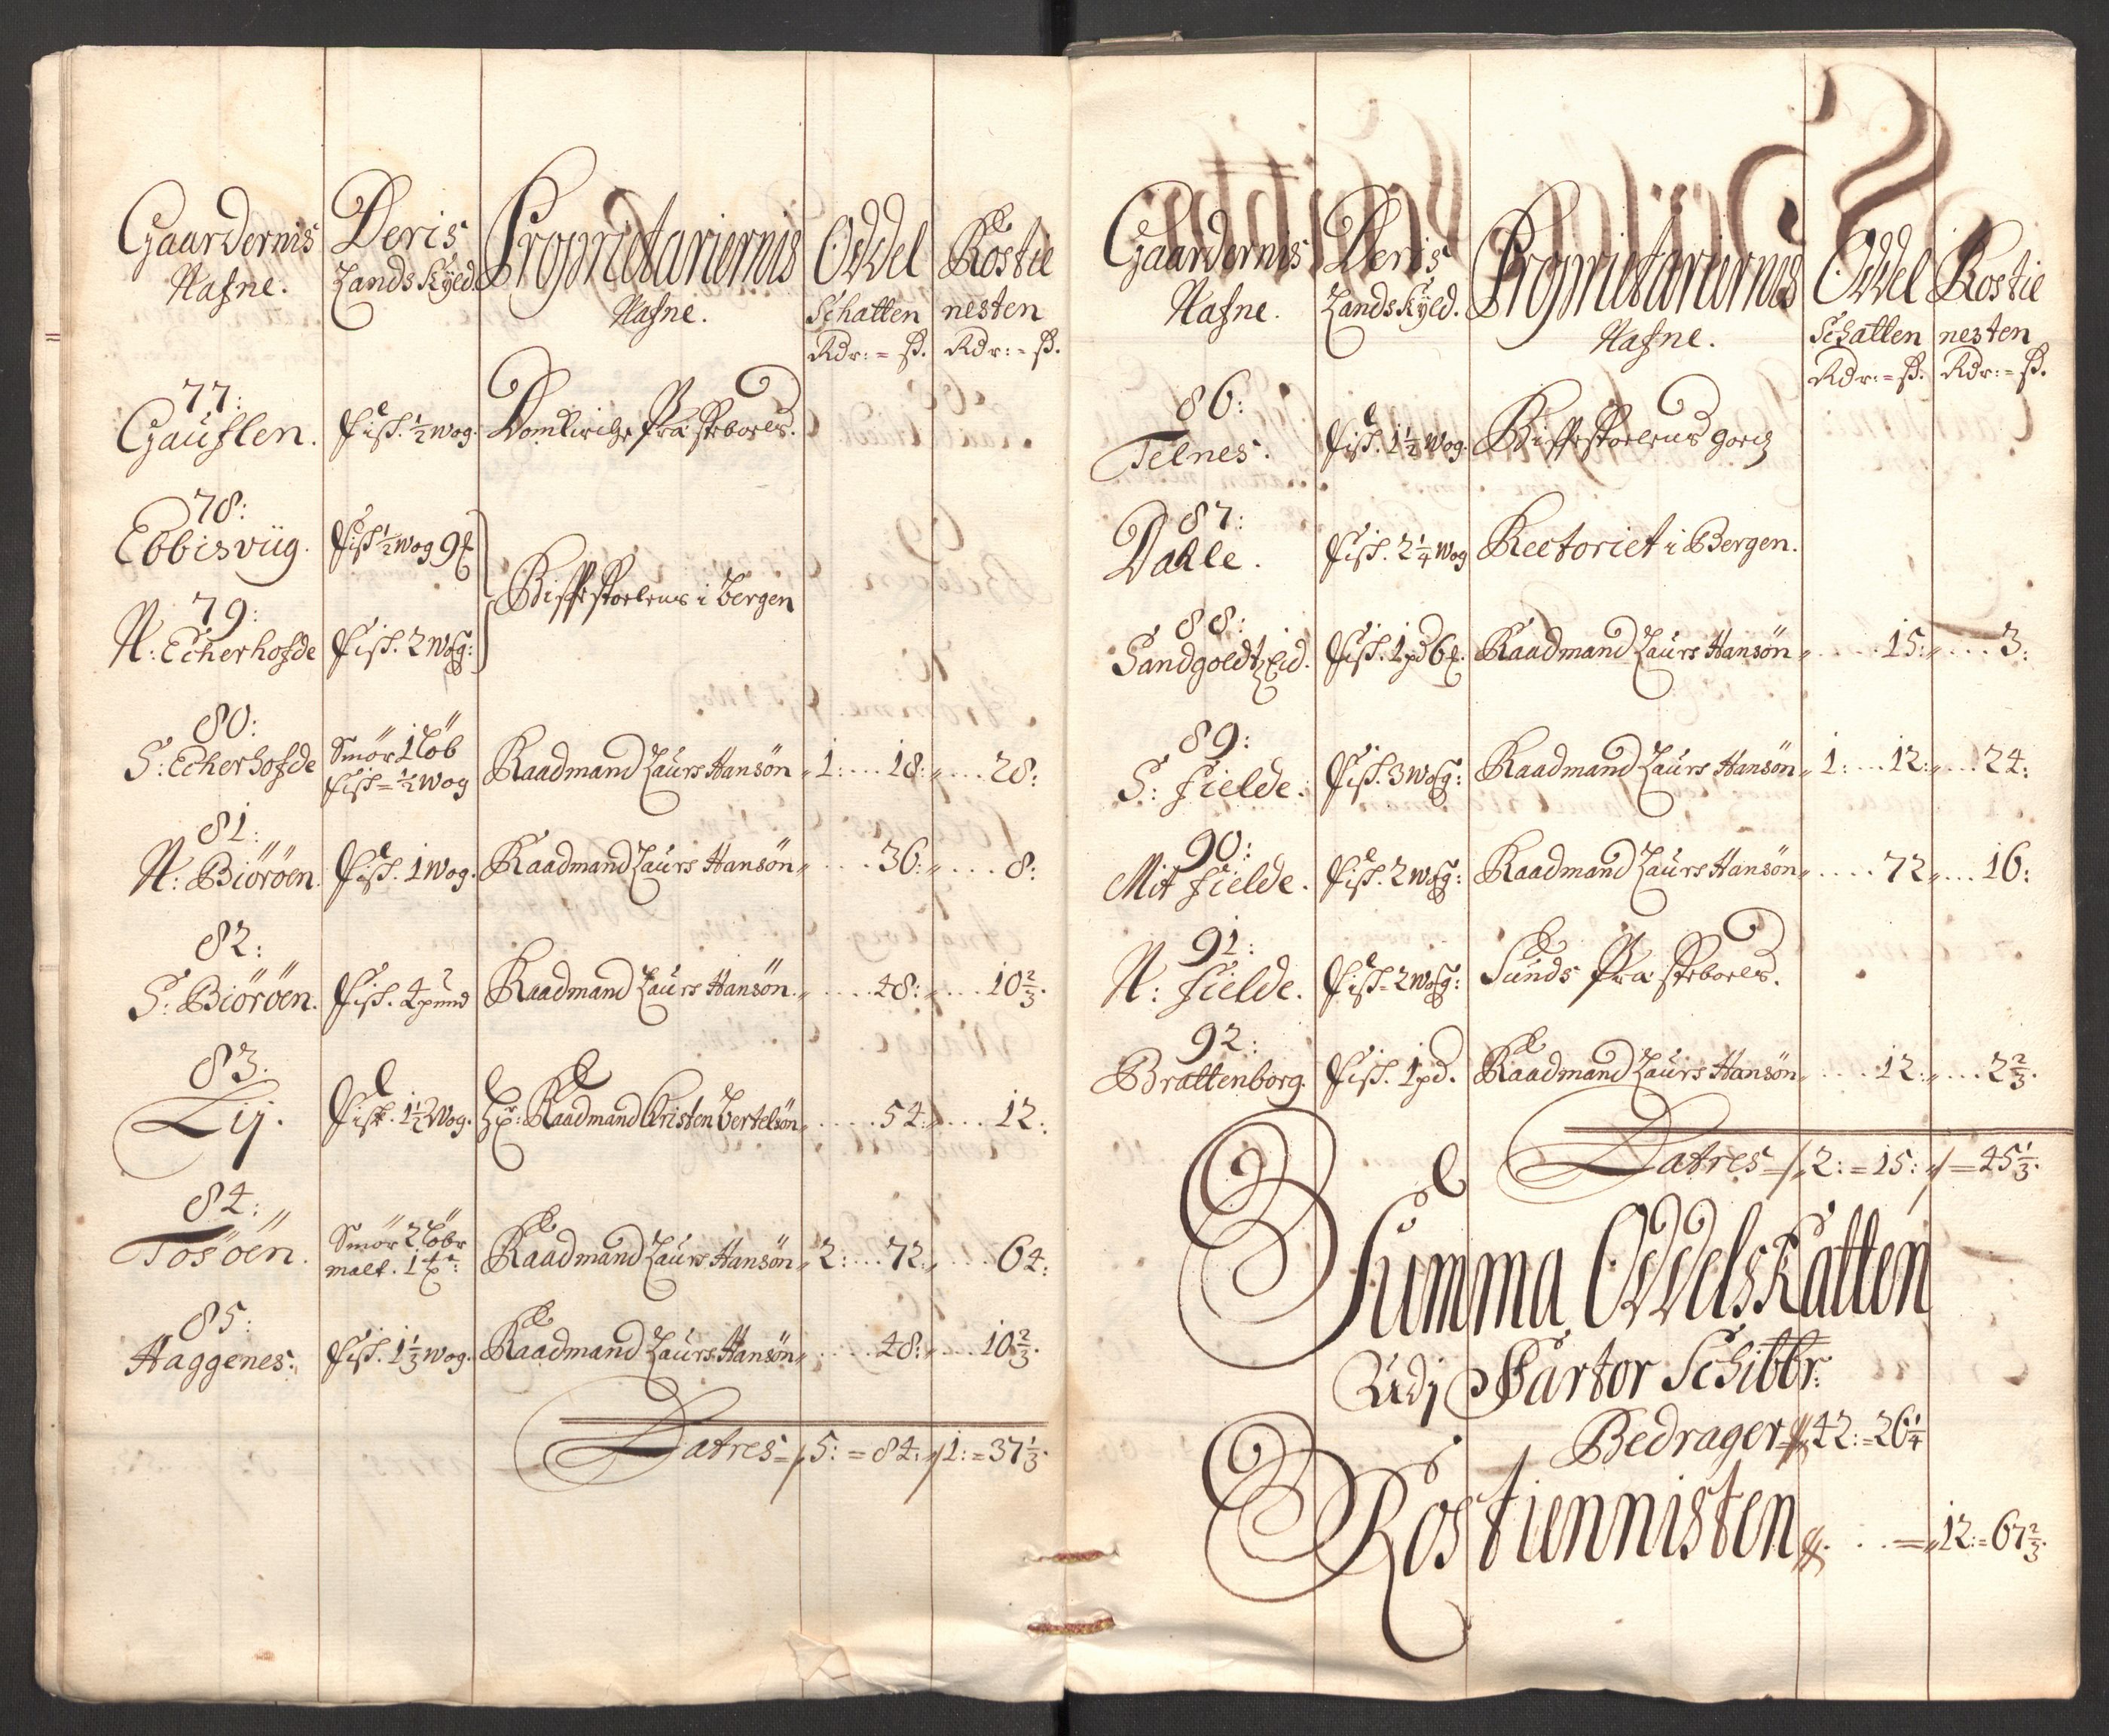 Gaardernis Deris Proprietariernis Oddel Rostie
Nafne. Landskyld. Nafne. Schatten nesten
Rdr: = ß. Rdr: = ß.
77:
Gausten. fisk. ½ wog. Domkirche Præsteboels.
78:
Ebbisviig. fisk ½ wog 9
79: Bispestoelens i Bergen
N: Echerhofde fisk. 2 wog:
80:
S: Echerhofde Smör 1 löb Raadmand Laurs Hansön 1: 18: 28:
fisk = ½ wog
81:
N: Biöröen. fisk. 1 wog. Raadmand Laurs Hansön 36: 8:
82:
S: Biöröen. fisk. 4 pund Raadmand Laurs Hansön 48: 10⅔.
83.
Lij. fisk. 1½ Wog. Hr: Raadmand Cristen Bertelsön 54: 12:
84:
Tosöen. Smör 2 löbr Raadmand Laurs Hansön 2: 72: 64:
malt. 1
85:
Haggenes: fisk. 1⅓ wog. Raadmand Laurs Hansön 48: 10⅔.
Latres = 5: = 84: 1: = 37⅓.
Gaardernis Deris Proprietariernis Oddel Rostie
Nafne. Landskyld. Nafne. Schatten nesten
Rdr: = ß. Rdr: = ß.
86:
Telnes. fisk. 1½ Wog. Bispestoelens goedz
87:
Dahle. fisk. 2¼ Wog Rectoriet i Bergen.
88:
Sandgoldtzeid. fisk. 1 pd 6 Raadmand Laurs Hansön 15: 3:
89:
S: Fielde. fisk. 3 wog: Raadmand Laurs Hansön 1: 12: 24:
90:
Mit Fielde. fisk. 2 wog: Raadmand Laurs Hansön 72 16:
91:
N: Fielde. fisk = 2 wog: Sunds Præsteboels.
92:
Brattenborg. fisk. 1 pd. Raadmand Laurs Hansön 12: 2⅔.
Latres = 2: = 15: = 45⅓.
Summa Oddelskatten
Udj Sartor Schibbr:
Bedrager 42: = 26¼
Rostiennisten = 12: = 67⅔.